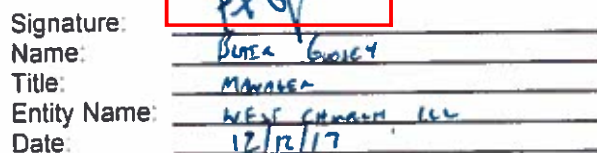 Signature:
Name:
Title: MANAGER
Entity Name: WEST CHURCH LLC
Date: 12/12/17